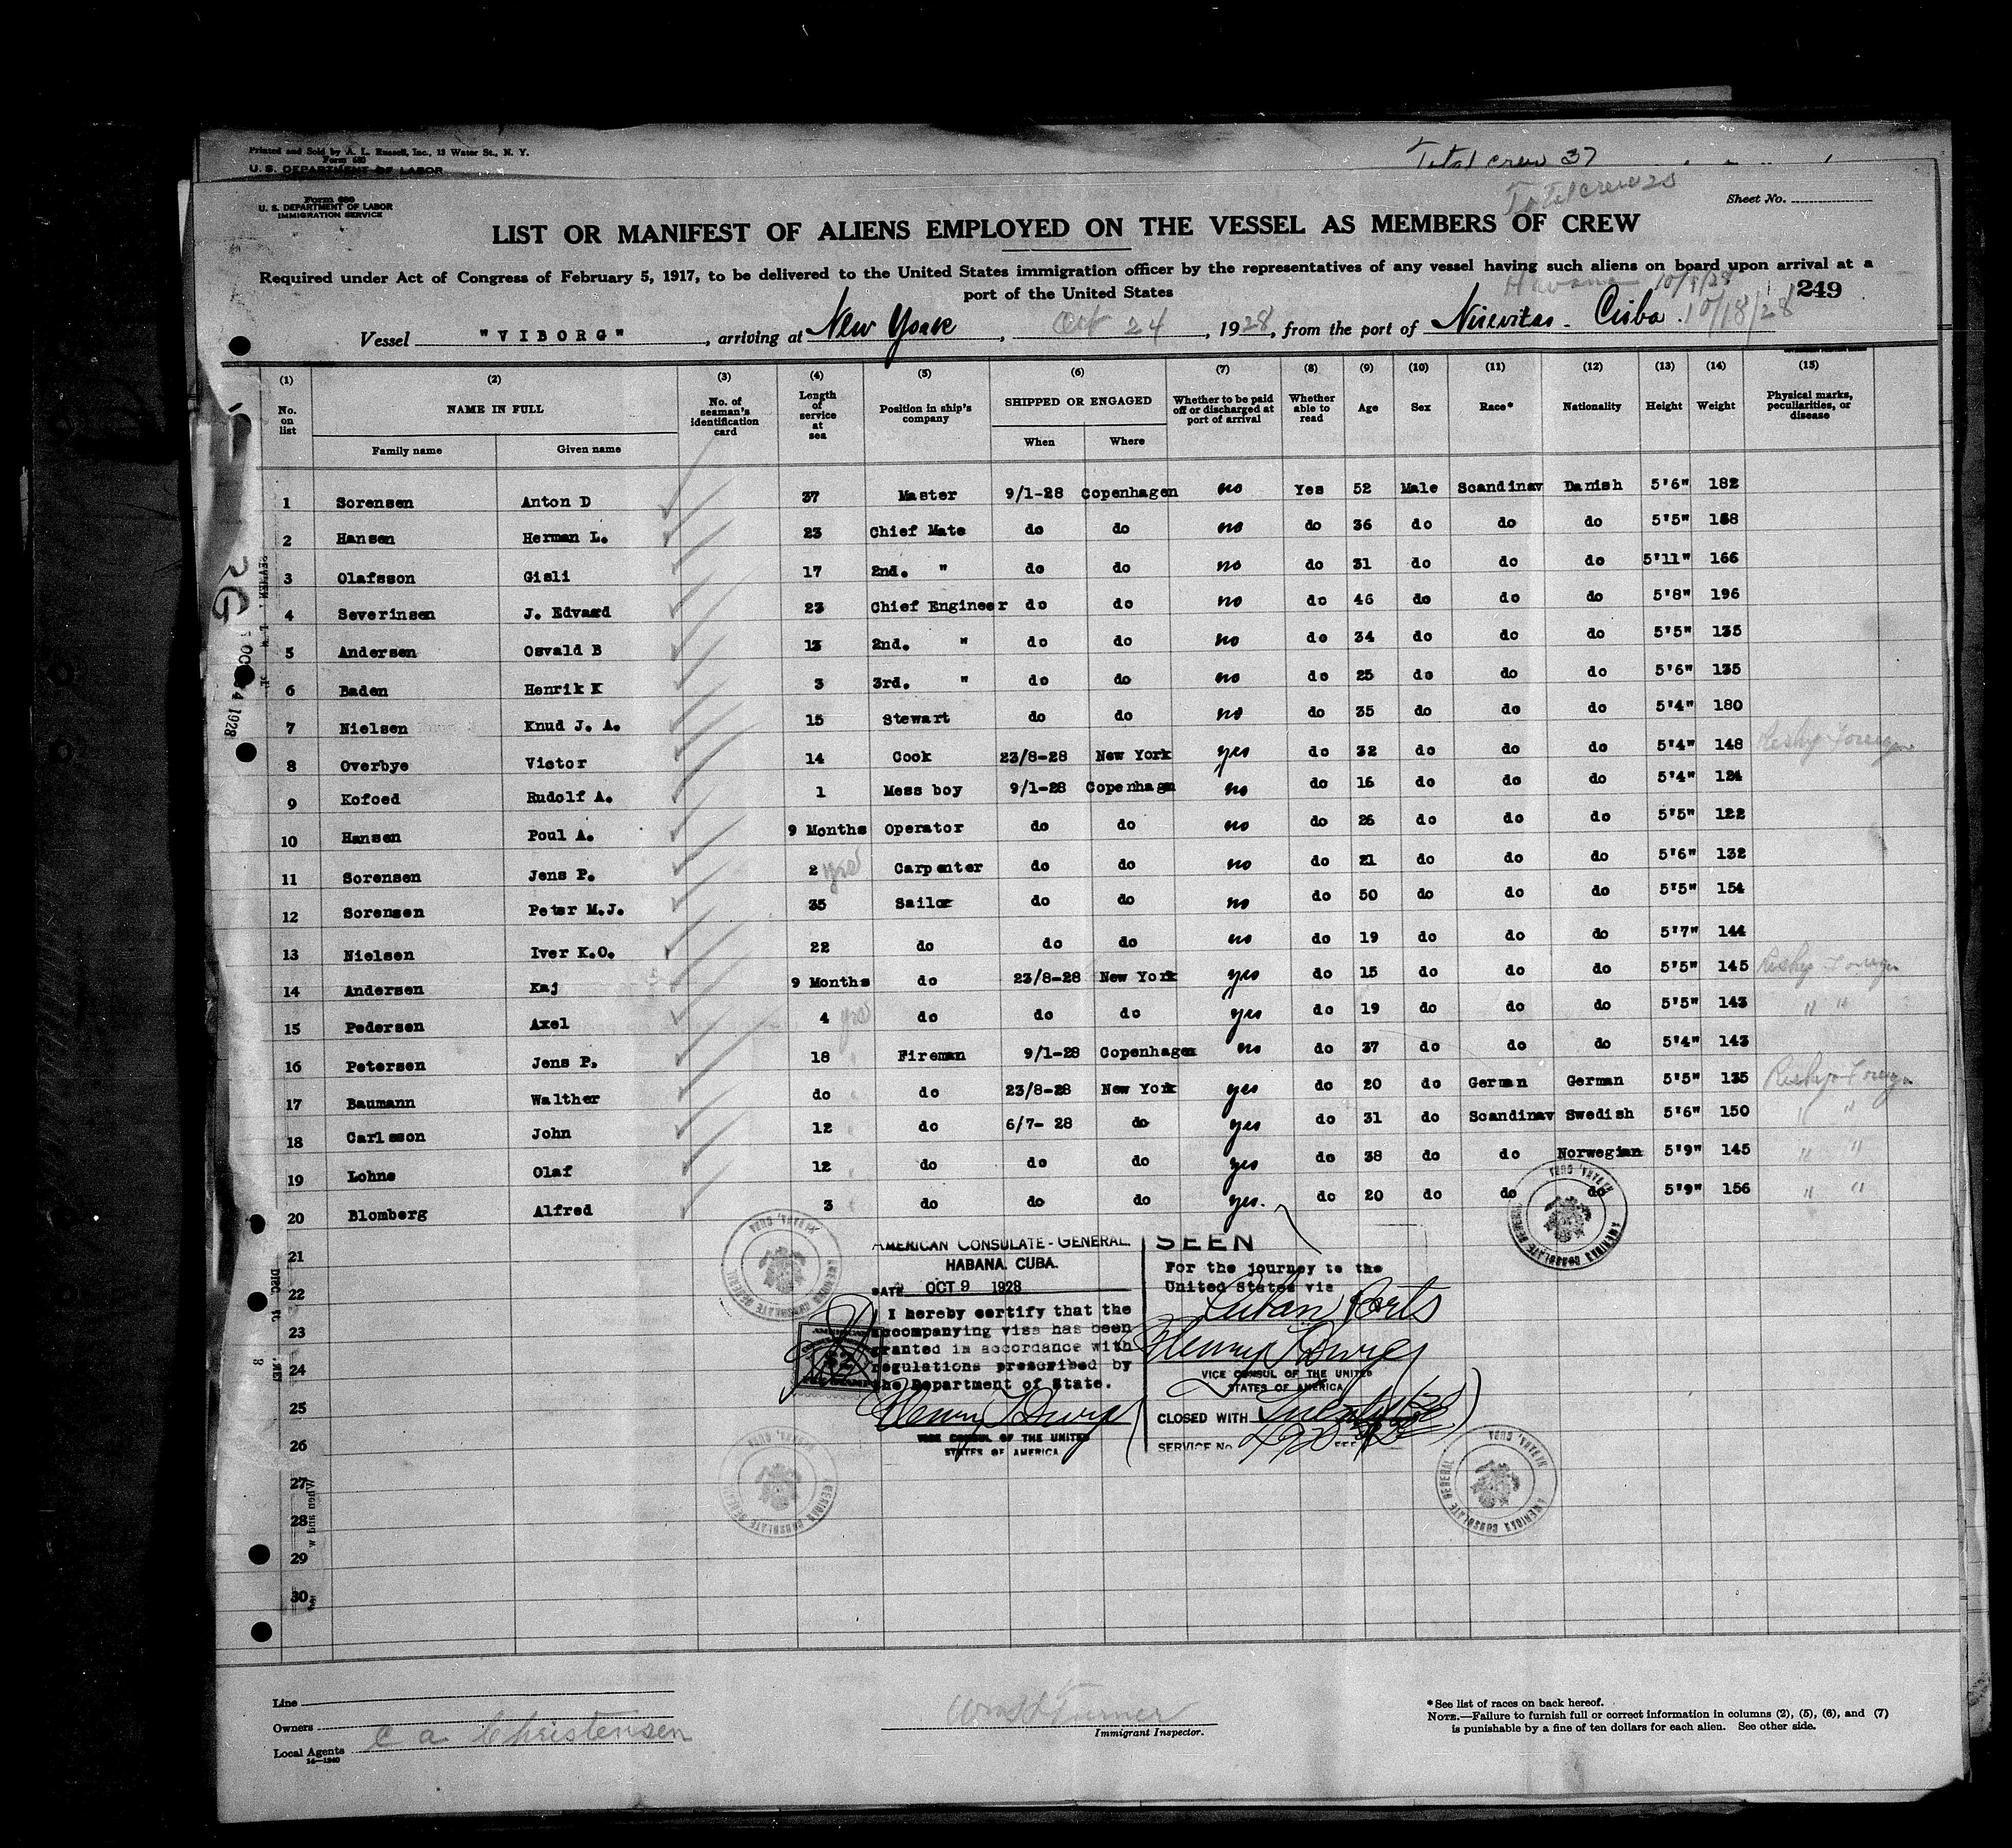 Printed and Sold by A. L. Russell, Inc., 13 Water St., N. Y.
Form 680
U. S. DEPARTMENT OF LABOR
Total crew 37
Total crew 20
Form 680
U. S. DEPARTMENT OF LABOR
IMMIGRATION SERVICE
Sheet No.
LIST OR MANIFEST OF ALIENS EMPLOYED ON THE VESSEL AS MEMBERS OF CREW
Required under Act of Congress of February 5, 1917, to be delivered to the United States immigration officer by the representatives of any vessel having such aliens on board upon arrival at a
port of the United States
Havana 10/9/28
249
Vessel "VIBORG", arriving at New York, Oct 24, 1928, from the port of Nuevitas - Cuba. 10/18/28
(1) (2) (3) (4) (5) (6) (7) (8) (9) (10) (11) (12) (13) (14) (15)
No. on list NAME IN FULL No. of seaman's identification card Length of service at sea Position in ship's company SHIPPED OR ENGAGED Whether to be paid off or discharged at port of arrival Whether able to read Age Sex Race* Nationality Height Weight Physical marks, peculiarities, or disease
Family name Given name When Where
1 Sorensen Anton D 37 Master 9/1-28 Copenhagen no Yes 52 Male Scandinav Danish 5'6" 182
2 Hansen Herman L. 23 Chief Mate do do no do 36 do do do 5'5" 158
3 Olafsson Gisli 17 2nd. " do do no do 31 do do do 5'11" 166
4 Severinsen J. Edvard 23 Chief Engineer do do no do 46 do do do 5'8" 196
5 Andersen Osvald B 13 2nd. " do do no do 34 do do do 5'5" 135
6 Baden Henrik K 3 3rd. " do do no do 25 do do do 5'6" 135
7 Nielsen Knud J. A. 15 Stewart do do no do 35 do do do 5'4" 180
8 Overbye Victor 14 Cook 23/8-28 New York yes do 32 do do do 5'4" 148 Reship Foreign
9 Kofoed Rudolf A. 1 Mess boy 9/1-28 Copenhagen no do 16 do do do 5'4" 124
10 Hansen Poul A. 9 Months Operator do do no do 26 do do do 5'5" 122
11 Sorensen Jens P. 2 yrs Carpenter do do no do 21 do do do 5'6" 132
12 Sorensen Peter M.J. 35 Sailor do do no do 50 do do do 5'5" 154
13 Nielsen Iver K.O. 22 do do do no do 19 do do do 5'7" 144
14 Andersen Kaj 9 Months do 23/8-28 New York yes do 15 do do do 5'5" 145 Reship Foreign
15 Pedersen Axel 4 yrs do do do yes do 19 do do do 5'5" 143 " "
16 Petersen Jens P. 18 Fireman 9/1-28 Copenhagen no do 37 do do do 5'4" 143
17 Baumann Walther do do 23/8-28 New York yes do 20 do German German 5'5" 135 Reship Foreign
18 Carlsson John 12 do 6/7- 28 do yes do 31 do Scandinav Swedish 5'6" 150 " "
19 Lohne Olaf 12 do do do yes do 38 do do Norwegian 5'9" 145 " "
20 Blomberg Alfred 3 do do do yes. do 20 do do do 5'9" 156 " "
21
22
23
24
25
26
27
28
29
30
AMERICAN CONSULATE-GENERAL.
HABANA. CUBA.
DATE OCT 9 1928
I hereby certify that the
accompanying visa has been
granted in accordance with
regulations prescribed by
the Department of State.
VICE CONSUL OF THE UNITED
STATES OF AMERICA
SEEN
For the journey to the
United States via
Cuban Ports
VICE CONSUL OF THE UNITED
STATES OF AMERICA
CLOSED WITH
SERVICE No. FEE
AMERICAN CONSULATE GENERAL HAVANA, CUBA
AMERICAN CONSULATE GENERAL HAVANA, CUBA
AMERICAN CONSULATE GENERAL HAVANA, CUBA
AMERICAN CONSULATE GENERAL HAVANA, CUBA
Line
Owners
Local Agents C A Christensen
14-1240
Turner
Immigrant Inspector.
*See list of races on back hereof.
NOTE.—Failure to furnish full or correct information in columns (2), (5), (6), and (7)
is punishable by a fine of ten dollars for each alien. See other side.